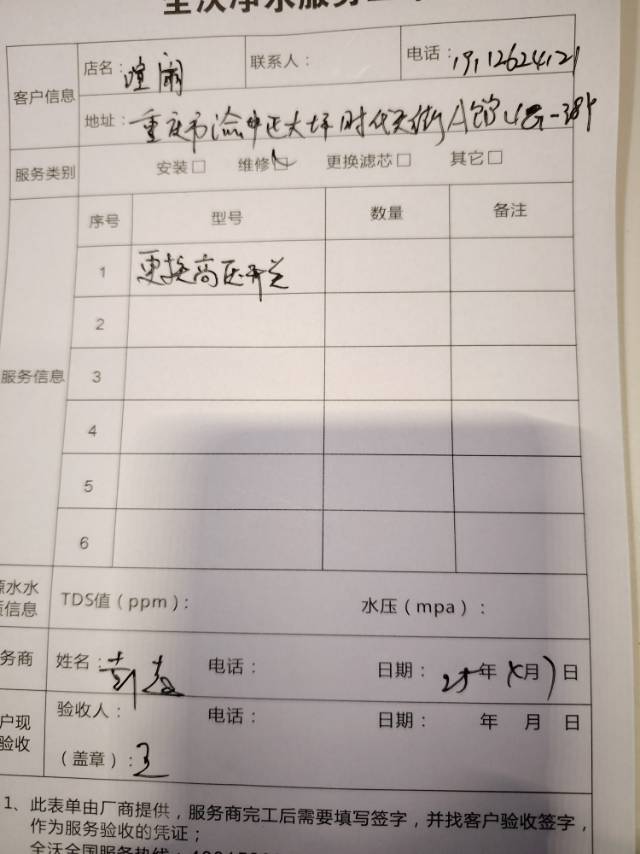 全沃净水服务
客户信息
店名：
联系人：
电话：19112624121
地址：重庆市渝中区大坪时代天街A馆
服务类别
安装□ 维修□ 更换滤芯□ 其它□
序号 型号 数量 备注
服务信息
1 更换高压开关
2
3
4
5
6
源水水
质信息
TDS值（ppm）： 水压（mpa）：
务商
姓名： 电话： 日期：25年 月 日
户现
验收
验收人： 电话： 日期： 年 月 日
（盖章）：王
1、此表单由厂商提供，服务商完工后需要填写签字，并找客户验收签字，
作为服务验收的凭证；
全沃全国服务热线：